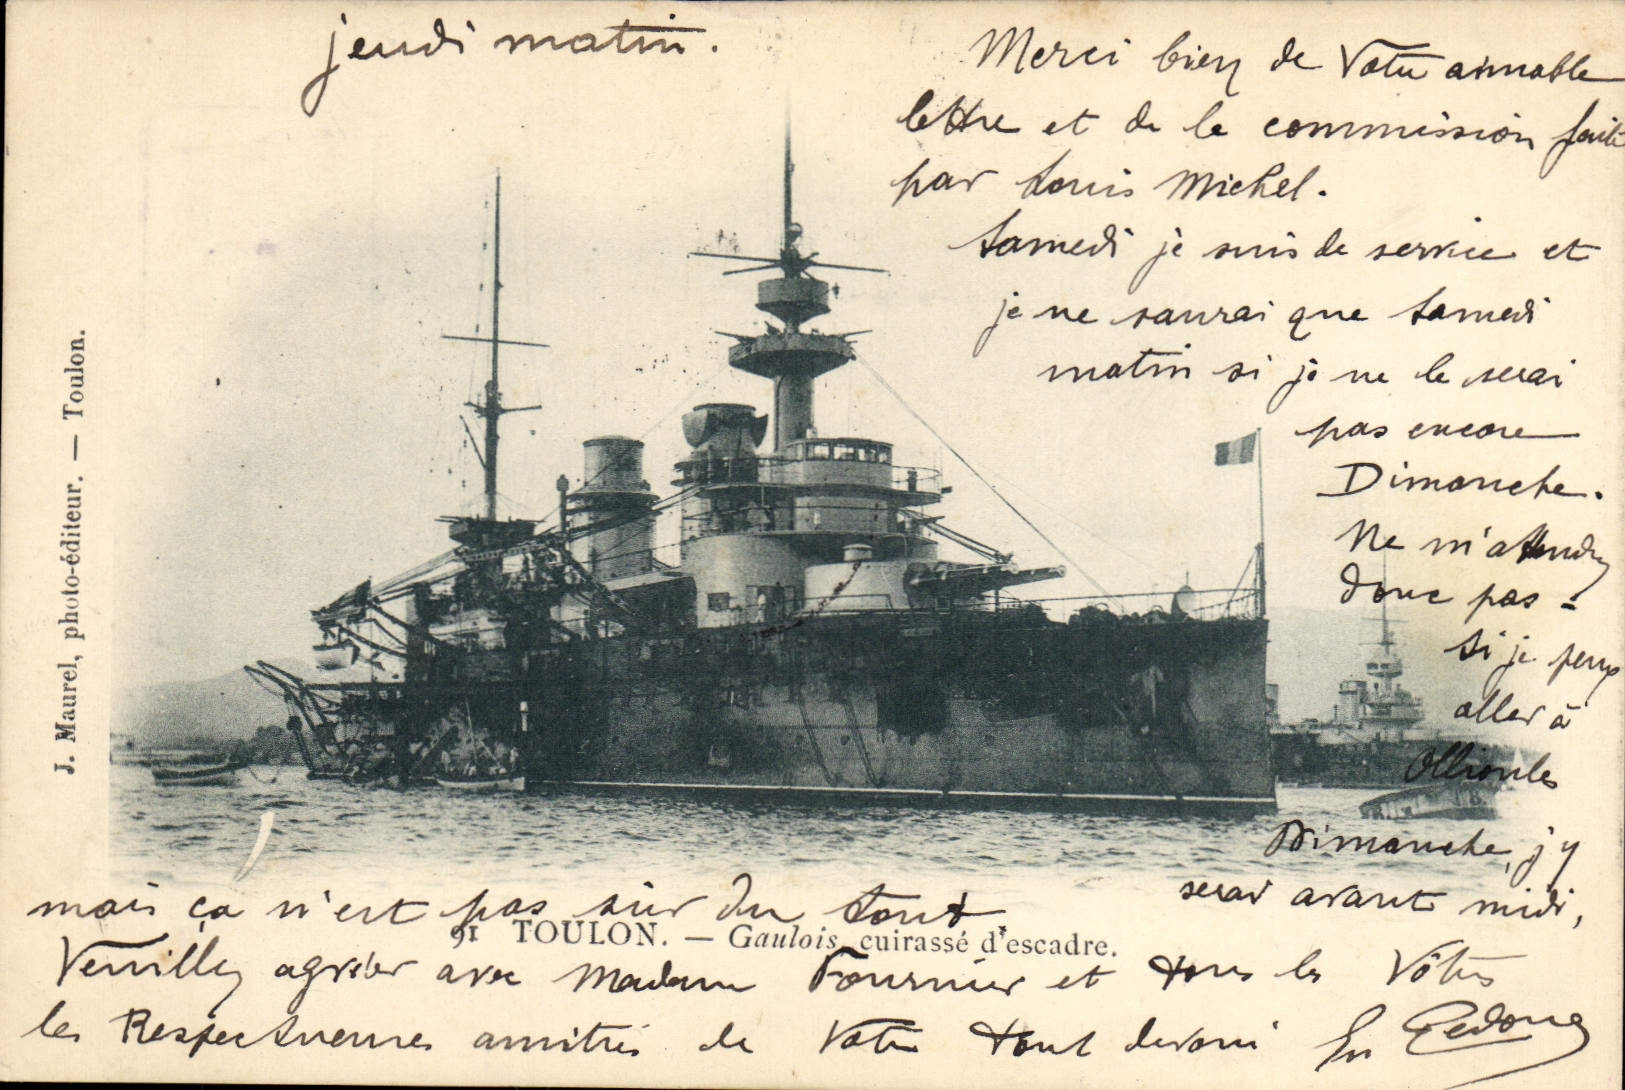 jeudi matin.
Merci bien de Votre aimable
lettre et de la commission faite
par Louis Michel.
Samedi je suis de service et
je ne saurai que Samedi
matin si je ne le serai
pas encore
Dimanche.
Ne m'attendez
donc pas -
Si je peux
aller à
Ollioules
Dimanche, j'y
serai avant midi,
mais ça n'est pas sûr du tout
Veuillez agréer avec Madame Fournier et tous les Vôtres
les Respectueuses amitiés de Votre tout dévoué
91 TOULON. — Gaulois, cuirassé d'escadre.
J. Maurel, photo-éditeur. — Toulon.